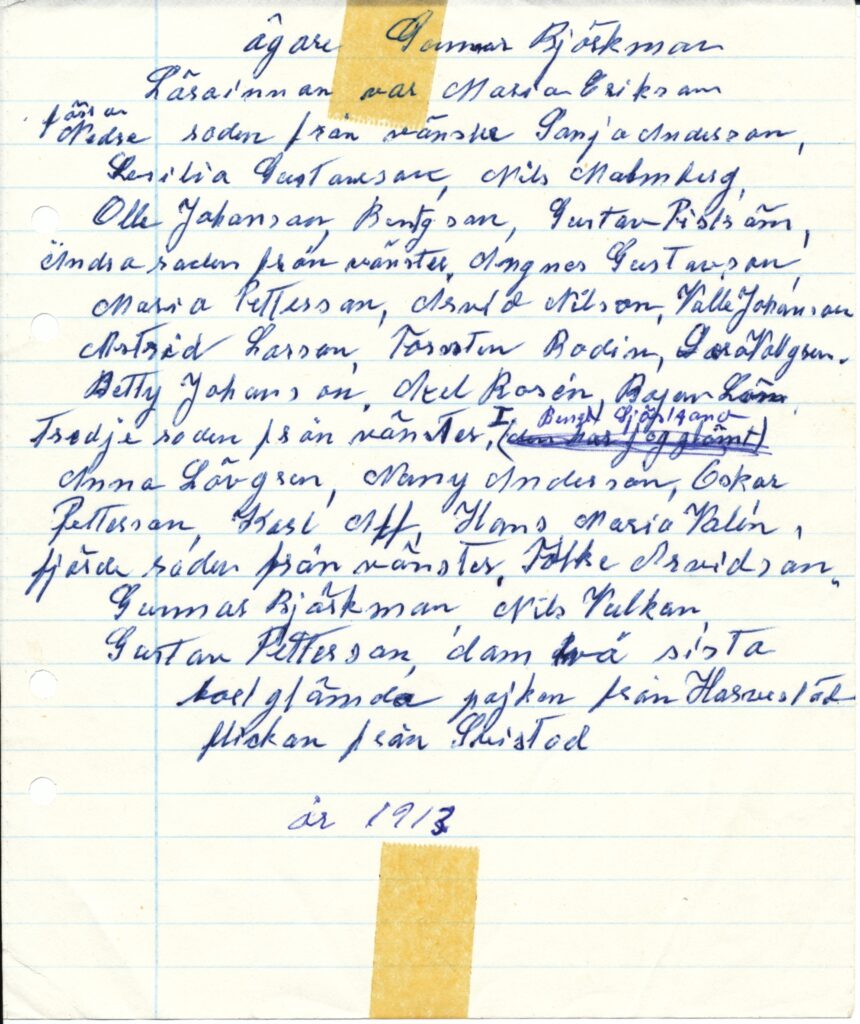 ägare Gunnar Björkman
Lärarinnan var Maria Erikson
första
Nedre raden från vänster Sonja Anderson,
Sesilia Gustavson, Nils Malmberg,
Olle Johanson, Bengson, Gustav
Andra raden från vänster, Angnes Gustavson,
Maria Petterson, Arvid Nilson, Valle Johanson
Astrid Larson, Torsten Bodin,
Betty Johanson, Axel Rosén,
Bengt Sjöstrand
Tredje raden från vänster, I, (den har jag glömt)
Anna Lövgren, Nanny Anderson, Oskar
Petterson, Karl Alf, Hans Maria Valén,
fjärde raden från vänster, Folke Arvidson,
Gunnar Björkman, Nils Vulkan,
Gustav Petterson, dom två sista
bortglömda pojken från Harvestad
flickan från
år 1913